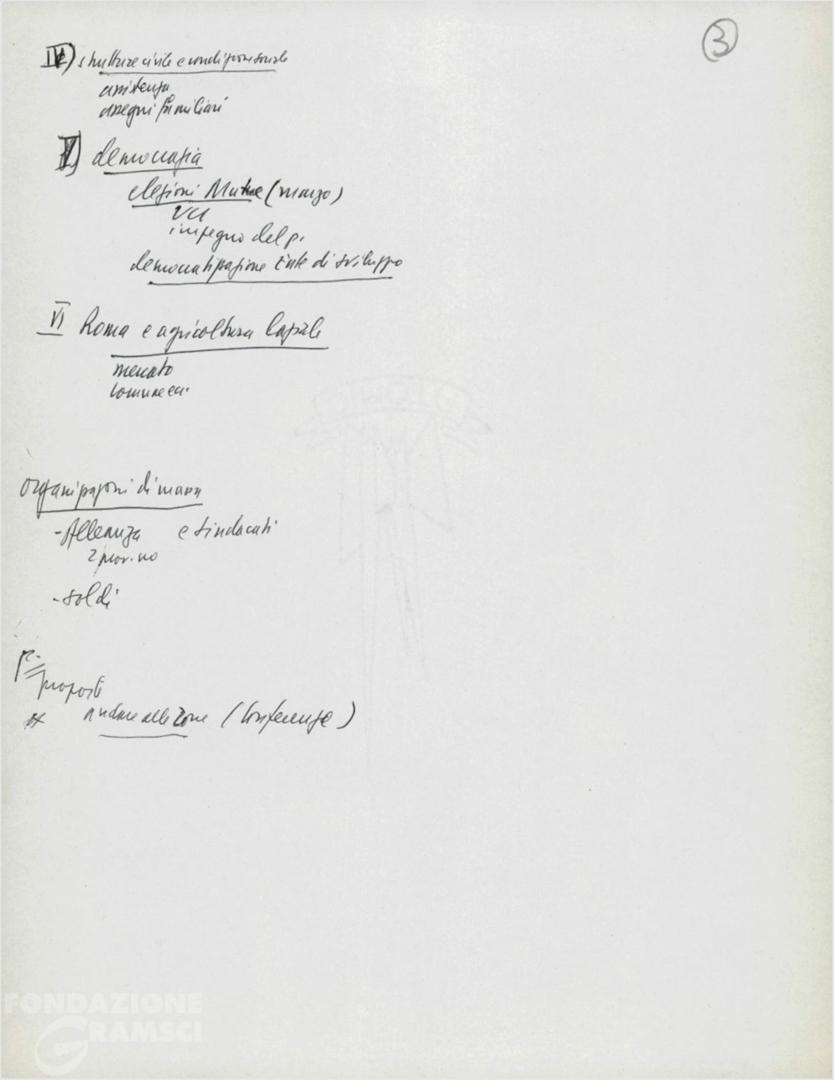 ③
IV) strutture civili e condizione sociale
assistenza
assegni familiari
V) democrazia
elezioni Mutue (marzo)
impegno del p.
democratizzazione Ente di sviluppo
VI Roma e agricoltura laziale
mercato
comune ecc.
organizzazioni di massa
- Alleanza e sindacati
- soldi
proposte
andare alle zone (Conferenze)
FONDAZIONE
GRAMSCI